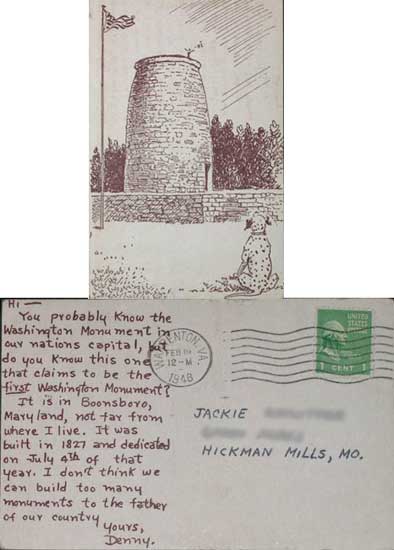 Hi —
You probably know the
Washington Monument in
our nations capital, but
do you know this one
that claims to be the
first Washington Monument?
It is in Boonsboro,
Maryland, not far from
where I live. It was
built in 1827 and dedicated
on July 4th of that
year. I don't think we
can build too many
monuments to the father
of our country
Yours,
Denny.
WARRENTON, VA.
FEB
12-M
1948
UNITED STATES
1 CENT 1
JACKIE
HICKMAN MILLS, MO.